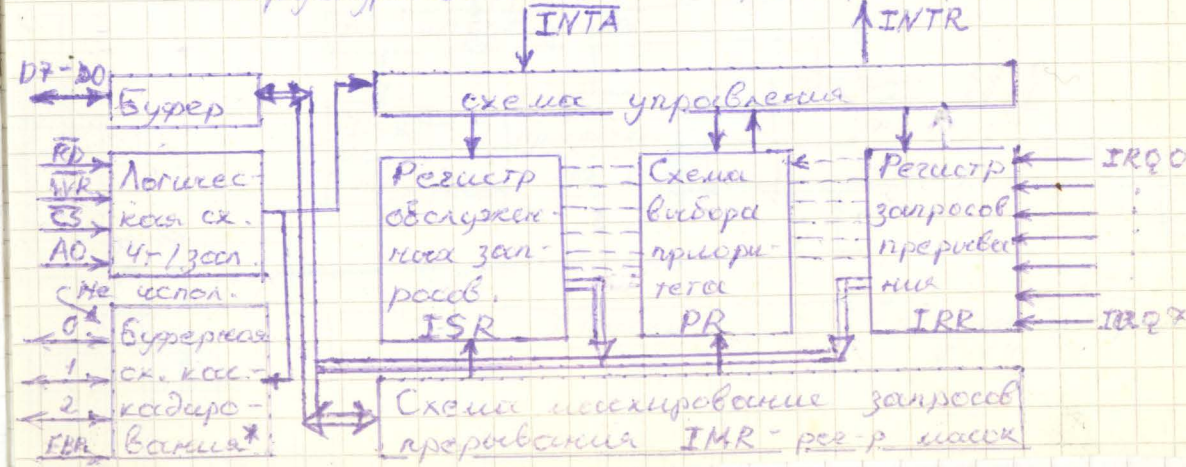 INTA
INTR
D7-D0
Буфер
схема управления
RD
WR
CS
A0
Логичес-
кая сх.
Чт/зап.
Регистр
обслужен-
ных зап-
росов.
ISR
Схема
выбора
приори-
тета
PR
Регистр
запросов
прерыва-
ния
IRR
IRQ0
IRQ7
Не испол.
0
1
2
Буферная
сх. кас-
кадиро-
вания*
Схема маскирование запросов
прерывания IMR - рег-р масок